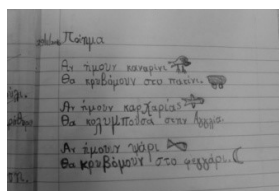 Ποίημα
Αν ήμουν καναρίνι
Θα κρυβόμουν στο πατίνι.
Αν ήμουν καρχαρίας
Θα κολυμπούσα στην Αγγλία.
Αν ήμουν ψάρι
Θα κρυβόμουν στο φεγγάρι.